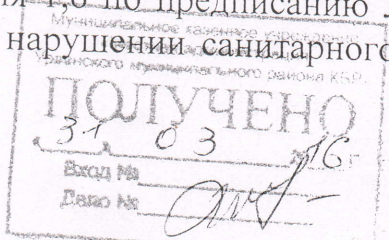 ия 1,8 по предписанию
нарушении санитарного
Муниципальное казенное учреждение
муниципального района КБР
ПОЛУЧЕНО
31 03 16 г
Вход №
Дело №